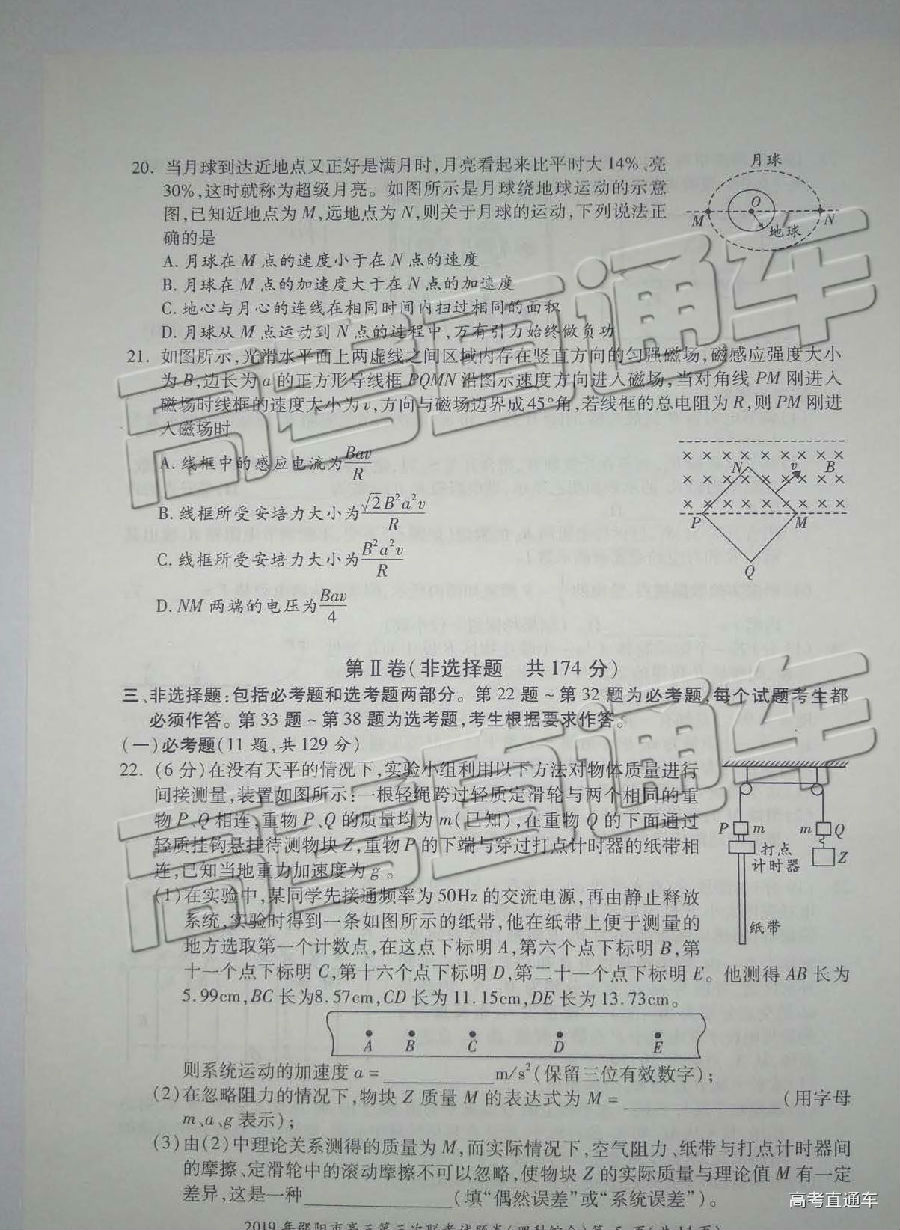 20. 当月球到达近地点又正好是满月时,月亮看起来比平时大14%、亮
30%,这时就称为超级月亮。如图所示是月球绕地球运动的示意
图,已知近地点为M,远地点为N,则关于月球的运动,下列说法正
确的是
月球
O
M
N
地球
A. 月球在M点的速度小于在N点的速度
B. 月球在M点的加速度大于在N点的加速度
C. 地心与月心的连线在相同时间内扫过相同的面积
D. 月球从M点运动到N点的过程中,万有引力始终做负功
21. 如图所示,光滑水平面上两虚线之间区域内存在竖直方向的匀强磁场,磁感应强度大小
为B,边长为a的正方形导线框PQMN沿图示速度方向进入磁场,当对角线PM刚进入
磁场时线框的速度大小为v,方向与磁场边界成45°角,若线框的总电阻为R,则PM刚进
入磁场时
A. 线框中的感应电流为Bav/R
B. 线框所受安培力大小为√2B²a²v/R
C. 线框所受安培力大小为B²a²v/R
D. NM两端的电压为Bav/4
N
v
B
P
M
Q
第Ⅱ卷(非选择题 共174分)
三、非选择题:包括必考题和选考题两部分。第22题~第32题为必考题,每个试题考生都
必须作答。第33题~第38题为选考题,考生根据要求作答。
(一)必考题(11题,共129分)
22. (6分)在没有天平的情况下,实验小组利用以下方法对物体质量进行
间接测量,装置如图所示:一根轻绳跨过轻质定滑轮与两个相同的重
物P、Q相连,重物P、Q的质量均为m(已知),在重物Q的下面通过
轻质挂钩悬挂待测物块Z,重物P的下端与穿过打点计时器的纸带相
连,已知当地重力加速度为g。
P m
m Q
打点
计时器
Z
纸带
(1)在实验中,某同学先接通频率为50Hz的交流电源,再由静止释放
系统,实验时得到一条如图所示的纸带,他在纸带上便于测量的
地方选取第一个计数点,在这点下标明A,第六个点下标明B,第
十一个点下标明C,第十六个点下标明D,第二十一个点下标明E。他测得AB长为
5.99cm,BC长为8.57cm,CD长为11.15cm,DE长为13.73cm。
A B C D E
则系统运动的加速度a=________m/s²(保留三位有效数字);
(2)在忽略阻力的情况下,物块Z质量M的表达式为M=____________(用字母
m、a、g表示);
(3)由(2)中理论关系测得的质量为M,而实际情况下,空气阻力、纸带与打点计时器间
的摩擦、定滑轮中的滚动摩擦不可以忽略,使物块Z的实际质量与理论值M有一定
差异,这是一种____________(填“偶然误差”或“系统误差”)。
高考直通车
高考直通车
高考直通车